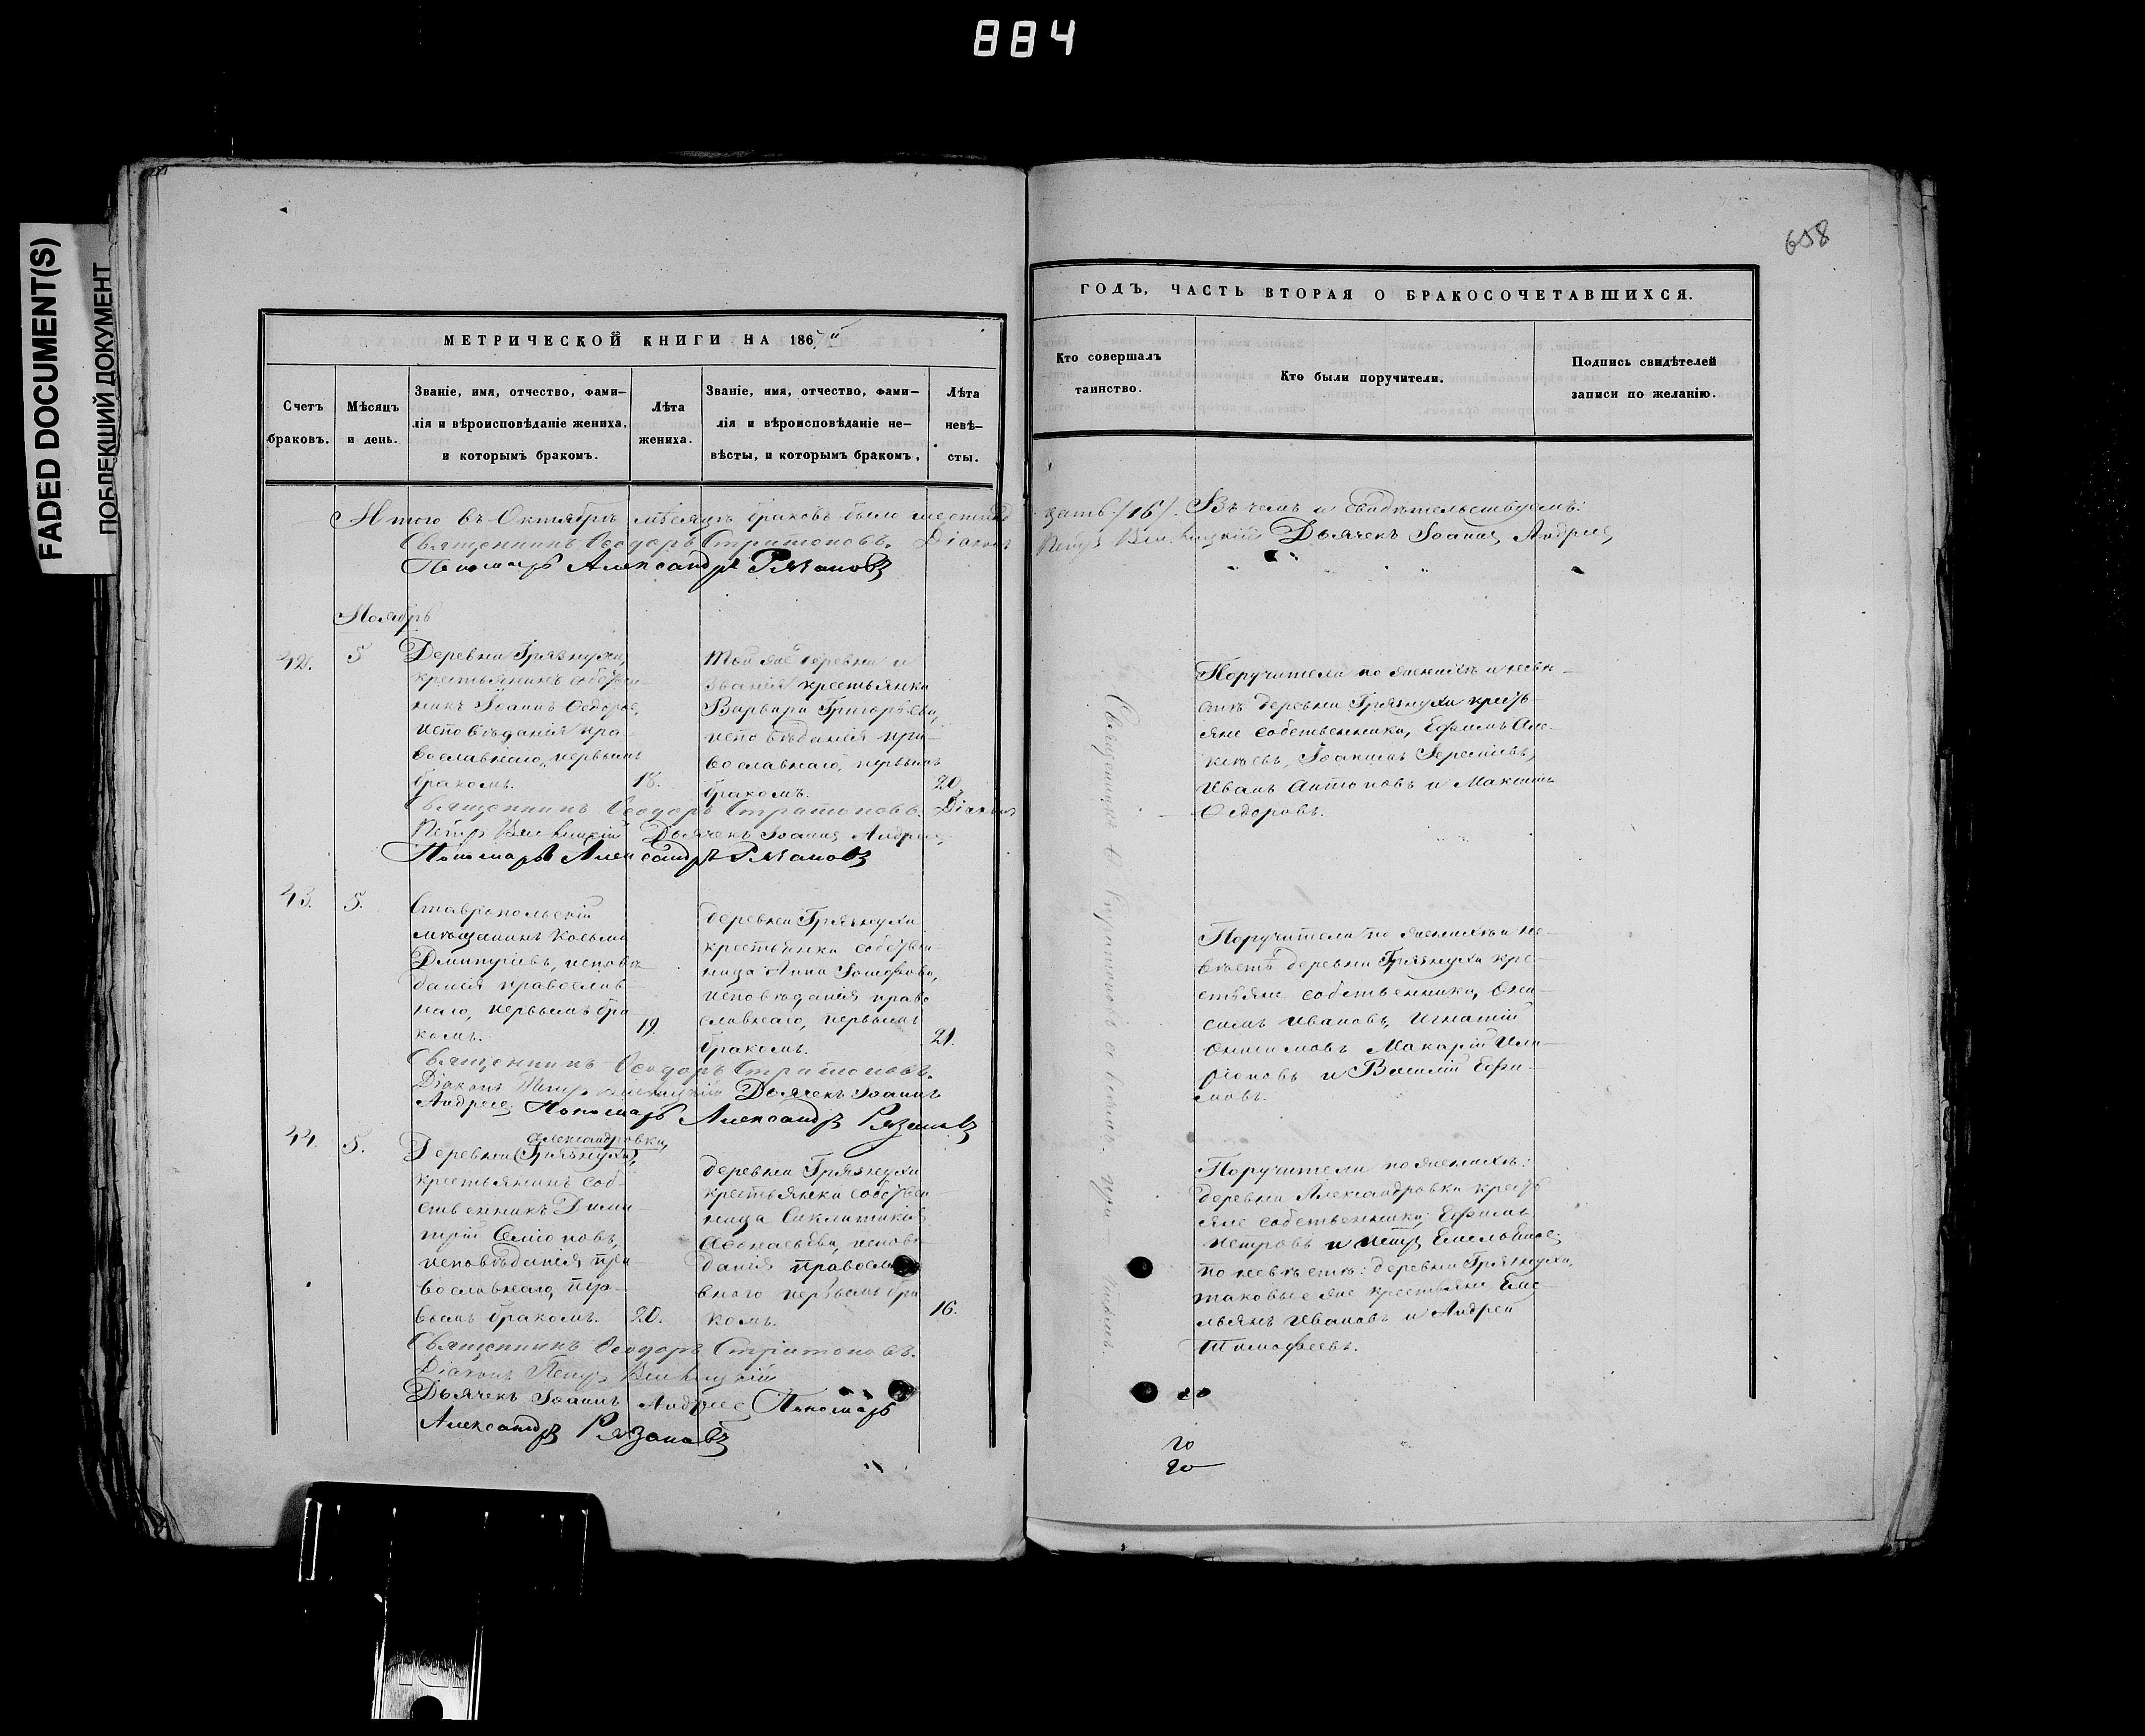 884
FADED DOCUMENT(S)
ПОБЛЕКШИЙ ДОКУМЕНТ
658
МЕТРИЧЕСКОЙ КНИГИ НА 186
Счетъ браковъ.
Мѣсяцъ и день.
Званіе, имя, отчество, фами-
лія и вѣроисповѣданіе жениха,
и которымъ бракомъ.
Лѣта жениха.
Званіе, имя, отчество, фами-
лія и вѣроисповѣданіе не-
вѣсты, и которымъ бракомъ,
Лѣта невѣ-
сты.
ГОДЪ, ЧАСТЬ ВТОРАЯ О БРАКОСОЧЕТАВШИХСЯ.
Кто совершалъ
таинство.
Кто были поручители.
Подпись свидѣтелей
записи по желанію.
Итого въ Октябрѣ мѣсяцѣ браковъ было шестнад
цать /16/. Въ чемъ и свидѣтельствуемъ:
Священникъ Ѳеодоръ Стратоновъ. Діаконъ
Петръ Дьячекъ Іоаннъ Андреев
Пономарь Александръ Рязановъ
Ноябрь
42.
5
Деревни Грязнухи,
крестьянинъ собствен-
никъ Іоаннъ Ѳедоров,
исповѣданія пра-
вославнаго, первымъ
бракомъ.
18.
Той же деревни и
званія крестьянка
Варвара Григорьева,
исповѣданія пра-
вославнаго, первымъ
бракомъ.
20.
Поручители по женихѣ и невѣ-
стѣ деревни Грязнухи кресть-
яне собственники, Ефимъ Але-
ксѣевъ, Іоакимъ Іеремѣевъ,
Иванъ Антоновъ и Максимъ
Ѳедоровъ.
Священникъ Ѳеодоръ Стратоновъ. Діаконъ
Петръ Дьячекъ Іоаннъ Андреев
Пономарь Александръ Рязановъ
43.
5.
Ставропольскій
мѣщанинъ Косьма
Димитріевъ, исповѣ-
данія православ-
наго, первымъ бра
комъ.
19.
деревни Грязнухи
крестьянка собствен-
ница Анна Іосифова,
исповѣданія право
славнаго, первымъ
бракомъ.
21.
Поручители по женихѣ и не-
вѣстѣ деревни Грязнухи кре-
стьяне собственники, Они-
симъ Ивановъ, Игнатій
Онисимовъ Макарій Ила-
ріоновъ и Василій Ефи-
мовъ.
Священникъ Ѳеодоръ Стратоновъ.
Діаконъ Петръ Дьячекъ Іоаннъ
Андреев Пономарь Александръ Рязановъ
44.
5.
Александровки,
Деревни (Грязнухи),
крестьянинъ соб-
ственникъ Дими-
трій Симеоновъ,
исповѣданія пра-
вославнаго, пер-
вымъ бракомъ.
20.
деревни Грязнухи
крестьянка собствен-
ница Синклитикія
Аѳонасьева, исповѣ
данія правосла
внаго первымъ бра
комъ.
16.
Поручители по женихѣ:
деревни Александровки кресть
яне собственники, Ефимъ
Петровъ и Петръ
по невѣстѣ: деревни Грязнухи,
таковые же крестьяне Еме-
льянъ Ивановъ и Андрей
Тимофеевъ.
Священникъ Ѳеодоръ Стратоновъ.
Діаконъ Петръ
Дьячекъ Іоаннъ Андреев Пономарь
Александръ Рязановъ
20
20